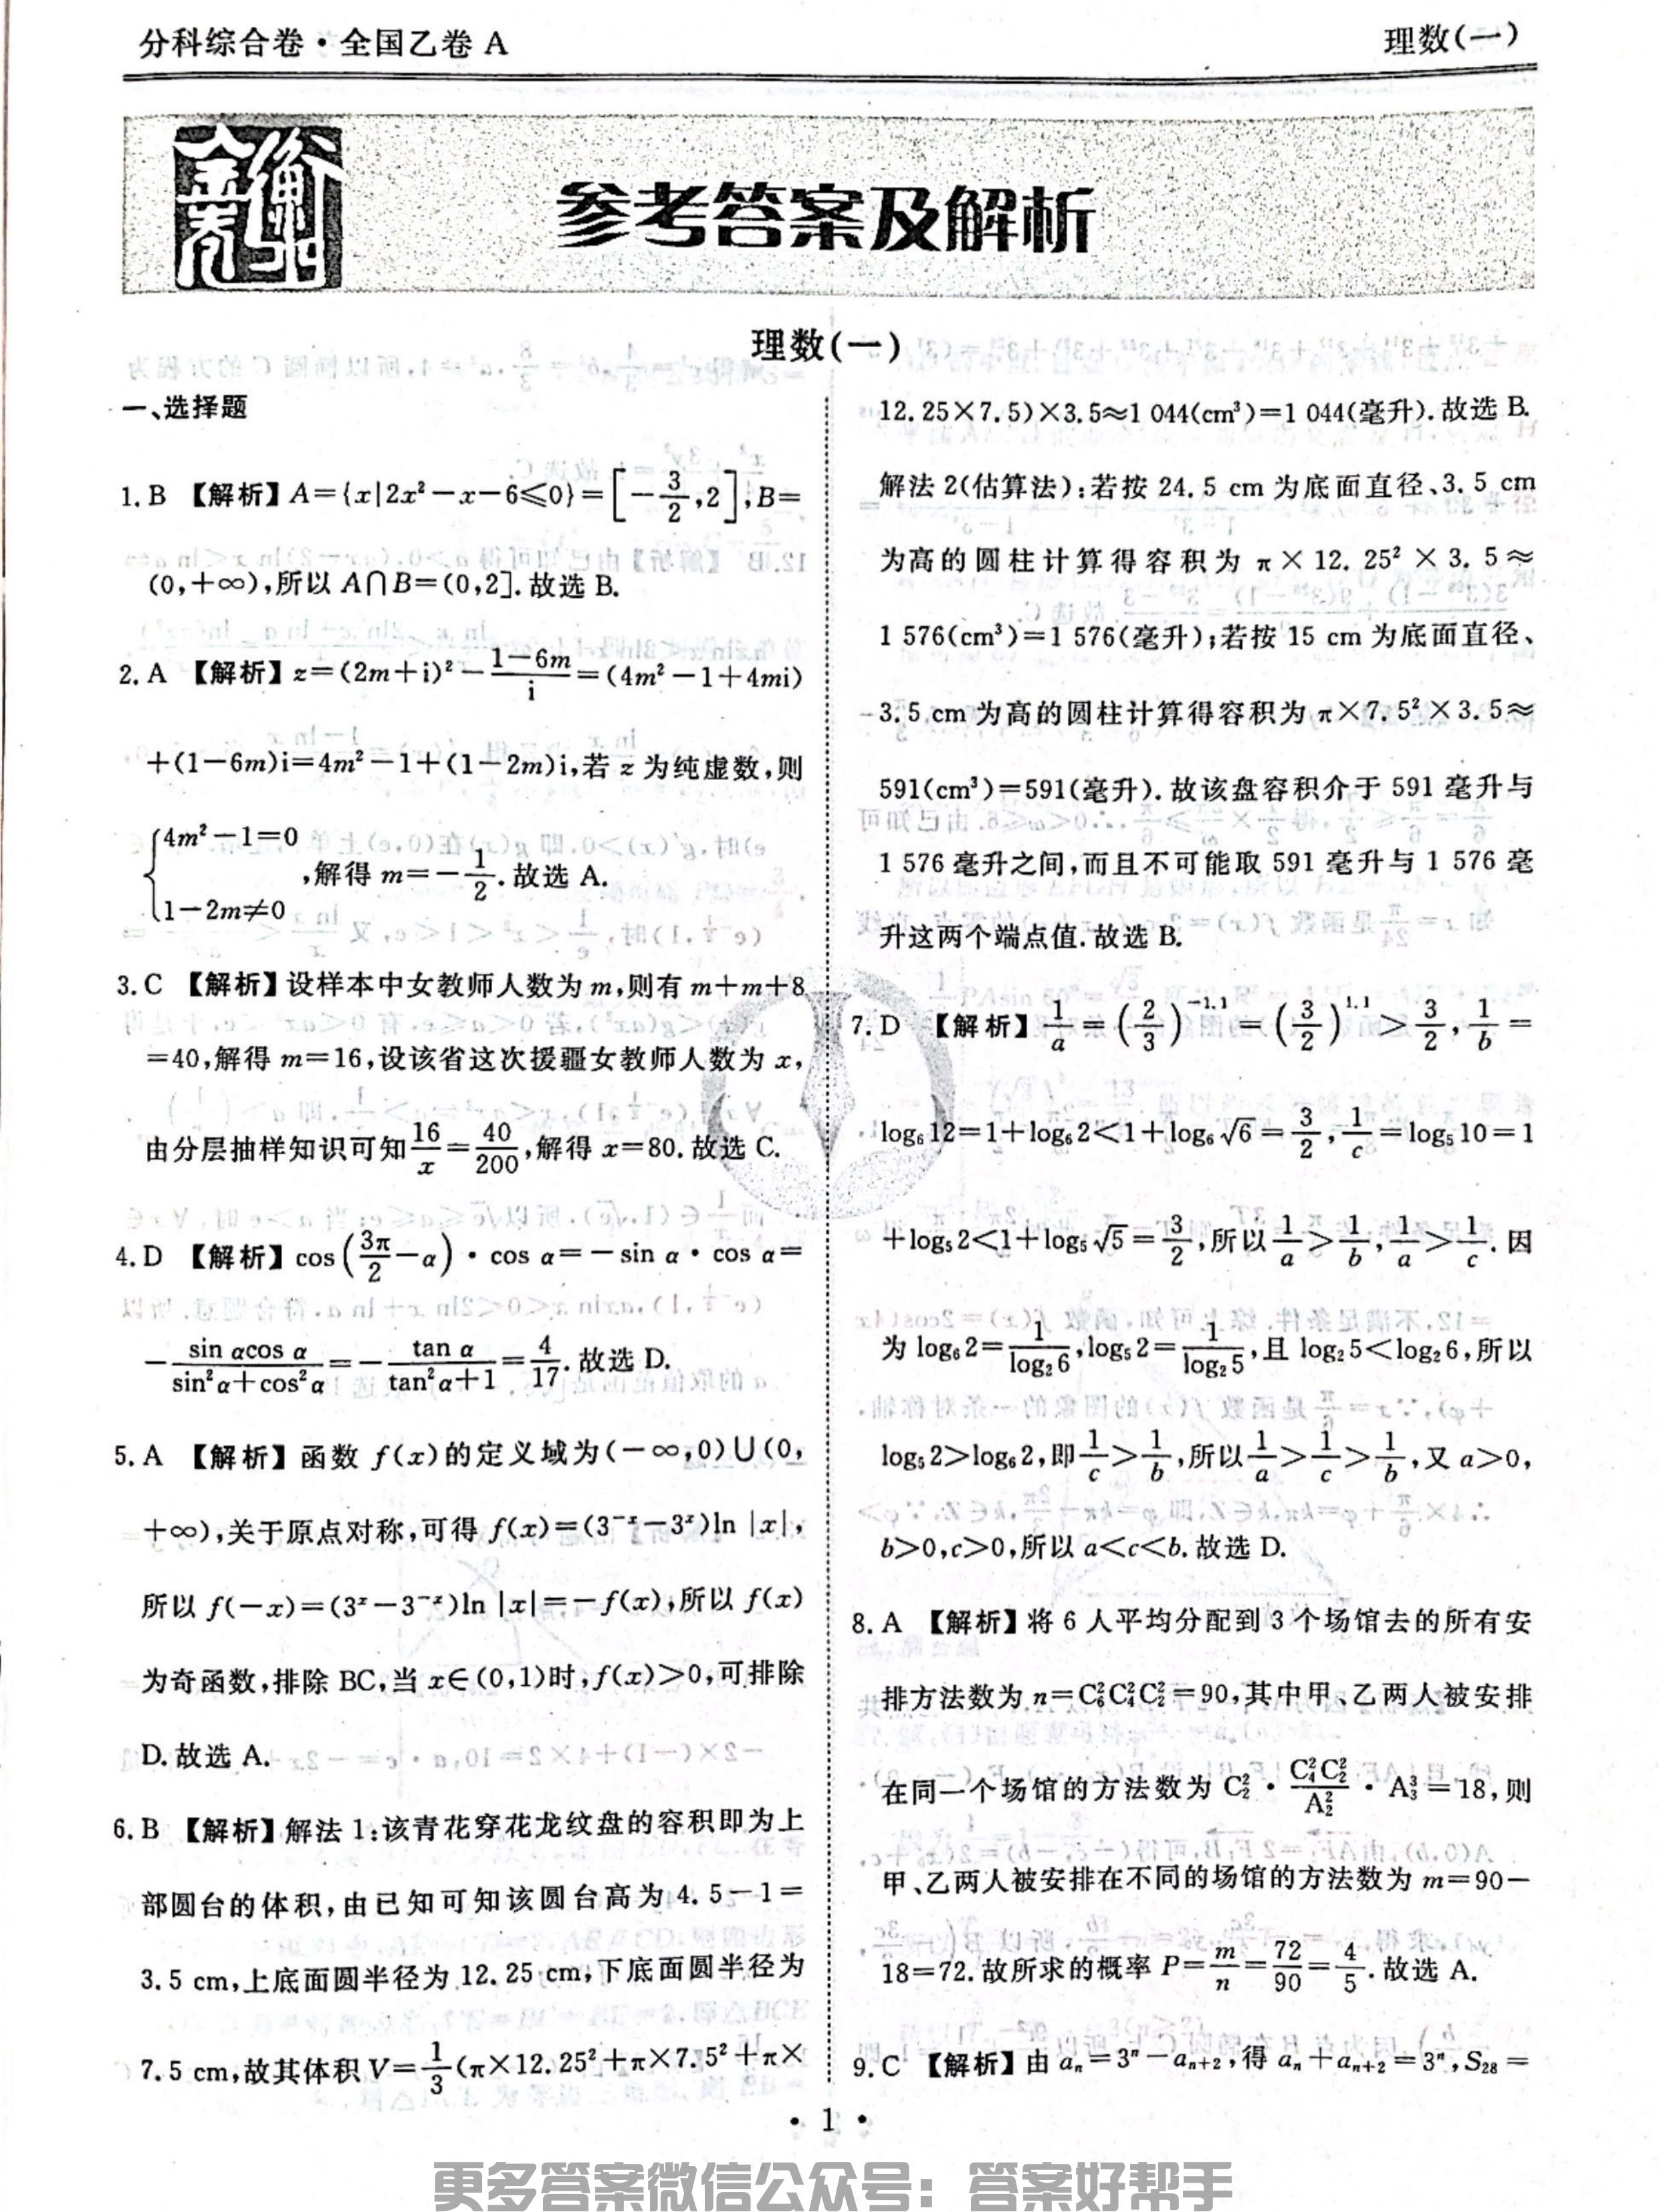 分科综合卷·全国乙卷 A
理数(一)
金卷衡中
参考答案及解析
理数(一)
一、选择题
1. B 【解析】A={x|2x²-x-6≤0}=[-3/2,2],B=
(0,+∞),所以 A∩B=(0,2].故选 B.
2. A 【解析】z=(2m+i)²-(1-6m)/i=(4m²-1+4mi)
+(1-6m)i=4m²-1+(1-2m)i,若 z 为纯虚数,则
{4m²-1=0
,解得 m=-1/2.故选 A.
1-2m≠0
3. C 【解析】设样本中女教师人数为 m,则有 m+m+8
=40,解得 m=16,设该省这次援疆女教师人数为 x,
由分层抽样知识可知16/x=40/200,解得 x=80.故选 C.
4. D 【解析】cos(3π/2-α)·cos α=-sin α·cos α=
-(sin αcos α)/(sin²α+cos²α)=-(tan α)/(tan²α+1)=4/17.故选 D.
5. A 【解析】函数 f(x)的定义域为(-∞,0)∪(0,
+∞),关于原点对称,可得 f(x)=(3⁻ˣ-3ˣ)ln |x|,
所以 f(-x)=(3ˣ-3⁻ˣ)ln |x|=-f(x),所以 f(x)
为奇函数,排除 BC,当 x∈(0,1)时,f(x)>0,可排除
D.故选 A.
6. B 【解析】解法 1:该青花穿花龙纹盘的容积即为上
部圆台的体积,由已知可知该圆台高为 4.5-1=
3.5 cm,上底面圆半径为 12.25 cm,下底面圆半径为
7.5 cm,故其体积 V=1/3(π×12.25²+π×7.5²+π×
12.25×7.5)×3.5≈1 044(cm³)=1 044(毫升).故选 B.
解法 2(估算法):若按 24.5 cm 为底面直径、3.5 cm
为高的圆柱计算得容积为 π×12.25²×3.5≈
1 576(cm³)=1 576(毫升);若按 15 cm 为底面直径、
3.5 cm 为高的圆柱计算得容积为 π×7.5²×3.5≈
591(cm³)=591(毫升).故该盘容积介于 591 毫升与
1 576 毫升之间,而且不可能取 591 毫升与 1 576 毫
升这两个端点值.故选 B.
7. D 【解析】1/a=(2/3)^(-1.1)=(3/2)^(1.1)>3/2,1/b=
log₆12=1+log₆2<1+log₆√6=3/2,1/c=log₅10=1
+log₅2<1+log₅√5=3/2,所以1/a>1/b,1/a>1/c.因
为 log₆2=1/(log₂6),log₅2=1/(log₂5),且 log₂5<log₂6,所以
log₅2>log₆2,即1/c>1/b,所以1/a>1/c>1/b,又 a>0,
b>0,c>0,所以 a<c<b.故选 D.
8. A 【解析】将 6 人平均分配到 3 个场馆去的所有安
排方法数为 n=C₆²C₄²C₂²=90,其中甲、乙两人被安排
在同一个场馆的方法数为 C₂²·(C₄²C₂²)/A₂²·A₃³=18,则
甲、乙两人被安排在不同的场馆的方法数为 m=90-
18=72.故所求的概率 P=m/n=72/90=4/5.故选 A.
9. C 【解析】由 aₙ=3ⁿ-aₙ₊₂,得 aₙ+aₙ₊₂=3ⁿ,S₂₈=
·1·
更多答案微信公众号：答案好帮手